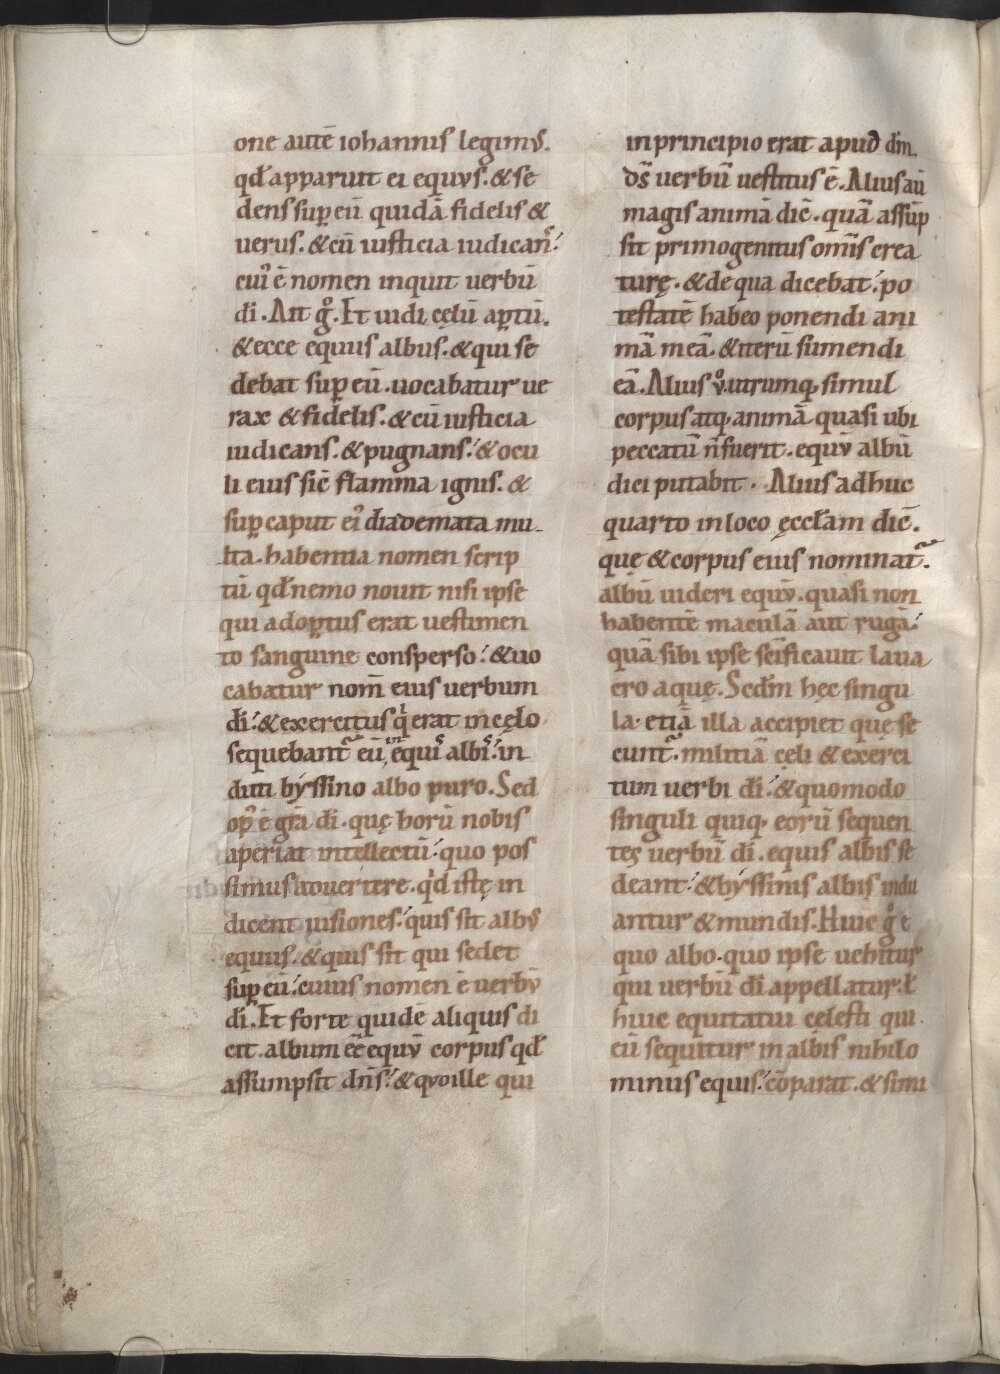 one autē iohannis legimꝰ.
qđ apparuit ei equus. & se
dens suꝑ eū quidā fidelis &
uerus. & cū iusticia iudicanſ.
cuiꝰ ē nomen inquit uerbū
dī. Ait gͦ. Et uidi cęlū aꝑtū.
& ecce equus albus. & qui se
debat suꝑ eū. uocabatur ue
rax & fidelis. & cū iusticia
iudicans. & pugnans. & ocu
li eius sic̄ flamma ignis. &
suꝑ caput eiꝰ diademata mu
lta. habentia nomen scrip
tū qđ nemo nouit nisi ipse
qui adoꝑtus erat uestimen
to sanguine consperso. & uo
cabatur nom̄ eius uerbum
dī. & exercitus qͥ erat in cęlo
sequebant᷑ eū in equis albis. in
duti byssino albo puro. Sed
opꝰ ē gr̄a dī. quę horū nobis
aperiat intellectū. quo pos
simus aduertere. qͥd istę in
dicent uisiones. quis sit albꝰ
equus. & quis sit qui sedet
suꝑ eū. cuius nomen ē uerbū
dī. Et forte quidē aliquis di
cit. album eē equū corpus qđ
assumpsit dn̄s. & quo ille qui
in principio erat apud dm̄.
ds̄ uerbū uestitus ē. Alius aū
magis animā dic̄. quā assūp
sit primogenitus omīs crea
turę. & de qua dicebat. po
testatē habeo ponendi ani
mā meā. & iterū sumendi
eā. Alius uͦ. utrumq; simul
corpus atq; animā quasi ubi
peccatū n̄ fuerit. equū albū
dici putabit. Alius adhuc
quarto in loco ęccłam dic̄.
quę & corpus eius nominat᷑.
albū uideri equū. quasi non
habentē maculā aut rugā.
quā sibi ipse sc̄ificauit laua
cro aquę. Scd̄m hęc singu
la. etiā illa accipiet quę se
cunt᷑. militiā cęli & exerci
tum uerbi dī. & quomodo
singuli quiq; eorū sequen
tes uerbū dī. equis albis se
deant. & byssinis albis indu
antur & mundis. Huic gͦ e
quo albo. quo ipse uehitur
qui uerbū dī appellatur. ł
huic equitatui cęlesti qui
eū sequitur in albis nihilo
minus equis. cōparat. & simi